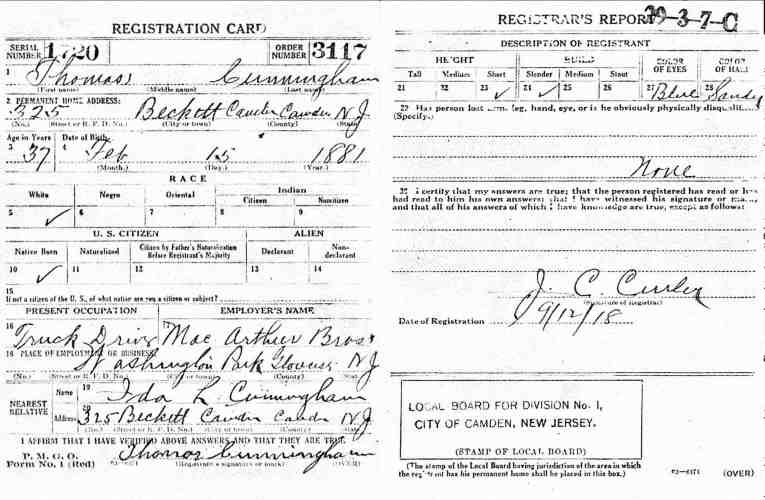 REGISTRATION CARD
SERIAL NUMBER 1720 ORDER NUMBER 3117
1 Thomas Cunningham
(First name) (Middle name) (Last name)
2 PERMANENT HOME ADDRESS:
325 Beckett Camden Camden N J
(No.) (Street or R. F. D. No.) (City or town) (County) (State)
Age in Years Date of Birth
3 37 4 Feb 15 1881
(Month.) (Day.) (Year.)
RACE
White Negro Oriental Indian
Citizen Noncitizen
5 ✓ 6 7 8 9
U. S. CITIZEN ALIEN
Native Born Naturalized Citizen by Father's Naturalization Before Registrant's Majority Declarant Non-declarant
10 ✓ 11 12 13 14
15
If not a citizen of the U. S., of what nation are you a citizen or subject?
PRESENT OCCUPATION EMPLOYER'S NAME
16 Truck Driver 17 Mac Arthur Bros
18 PLACE OF EMPLOYMENT OR BUSINESS:
Washington Park Gloucester N J
(No.) (Street or R. F. D. No.) (City or town) (County) (State)
NEAREST RELATIVE
Name 19 Ida L Cunningham
Address 20 325 Beckett Camden Camden N J
(No.) (Street or R. F. D. No.) (City or town) (County) (State)
I AFFIRM THAT I HAVE VERIFIED ABOVE ANSWERS AND THAT THEY ARE TRUE
P. M. G. O.
Form No. 1 (Red) 03-6171 Thomas Cunningham
(Registrant's signature or mark) (OVER)
REGISTRAR'S REPORT 29-3-7-C
DESCRIPTION OF REGISTRANT
HEIGHT BUILD COLOR OF EYES COLOR OF HAIR
Tall Medium Short Slender Medium Stout
21 22 23 ✓ 24 ✓ 25 26 27 Blue 28 Sandy
29 Has person lost arm, leg, hand, eye, or is he obviously physically disqualified?
(Specify.)
None
30 I certify that my answers are true; that the person registered has read or has
had read to him his own answers; that I have witnessed his signature or mark,
and that all of his answers of which I have knowledge are true, except as follows:
J. C. Curley
(Signature of Registrar)
Date of Registration 9/12/18
LOCAL BOARD FOR DIVISION No. 1,
CITY OF CAMDEN, NEW JERSEY.
(STAMP OF LOCAL BOARD)
(The stamp of the Local Board having jurisdiction of the area in which
the registrant has his permanent home shall be placed in this box.)
03-6171 (OVER)